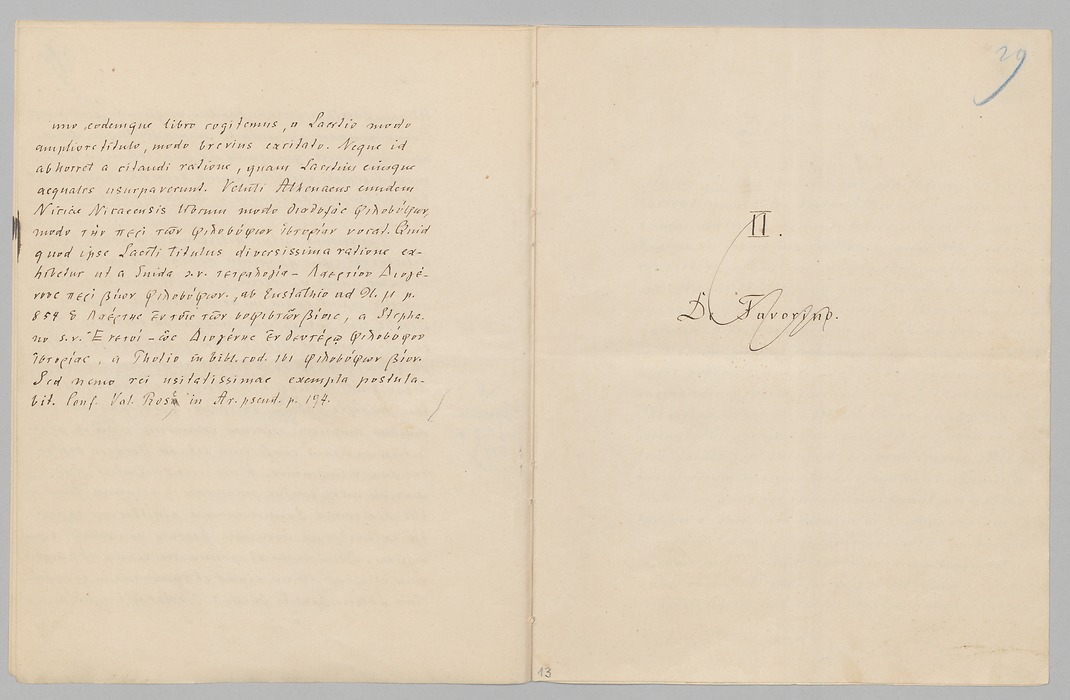 uno eodemque libro cogitemus, a Laertio modo
ampliore titulo, modo brevius excitato. Neque id
abhorret a citandi ratione, quam Laertius eiusque
aequales usurpaverunt. Veluti Athenaeus eundem
Niciae Nicaeensis librum modo διαδοχὰς φιλοσόφων,
modo τὴν περὶ τῶν φιλοσόφων ἱστορίαν vocat. Quid
quod ipse Laerti titulus diversissima ratione ex-
hibetur ut a Suida s.v. τετραλογία – Λαερτίου Διογέ-
νους περὶ βίων φιλοσόφων, ab Eustathio ad Il. μ p.
854 Λαέρτης ἐν τοῖς τῶν σοφιστῶν βίοις, a Stepha-
no s.v. Ἐνετοί – ὡς Διογένης ἐν δευτέρῳ φιλοσόφου
ἱστορίας, a Photio in bibl. cod. 161 φιλοσόφων βίον.
Sed nemo rei usitatissimae exempla postula-
bit. Conf. Val. Rose in Ar. pseud. p. 194.
29
II.
De Favorino.
13